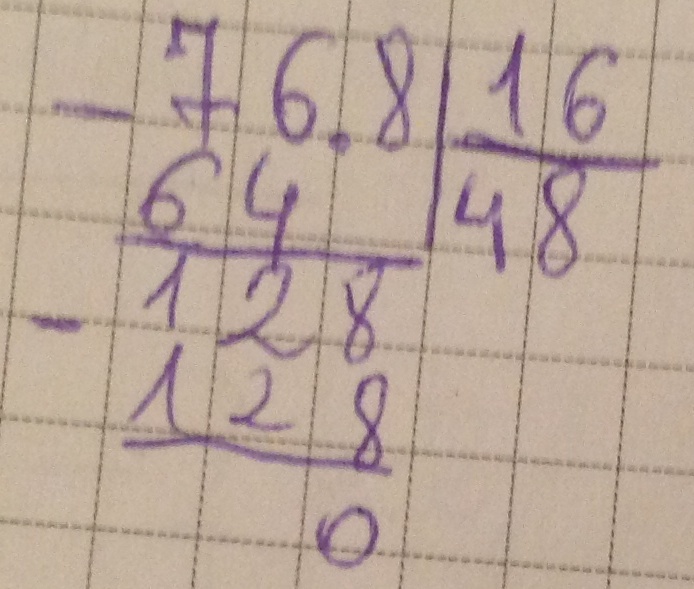 - 76.8 | 16
64 | 48
- 128
128
0